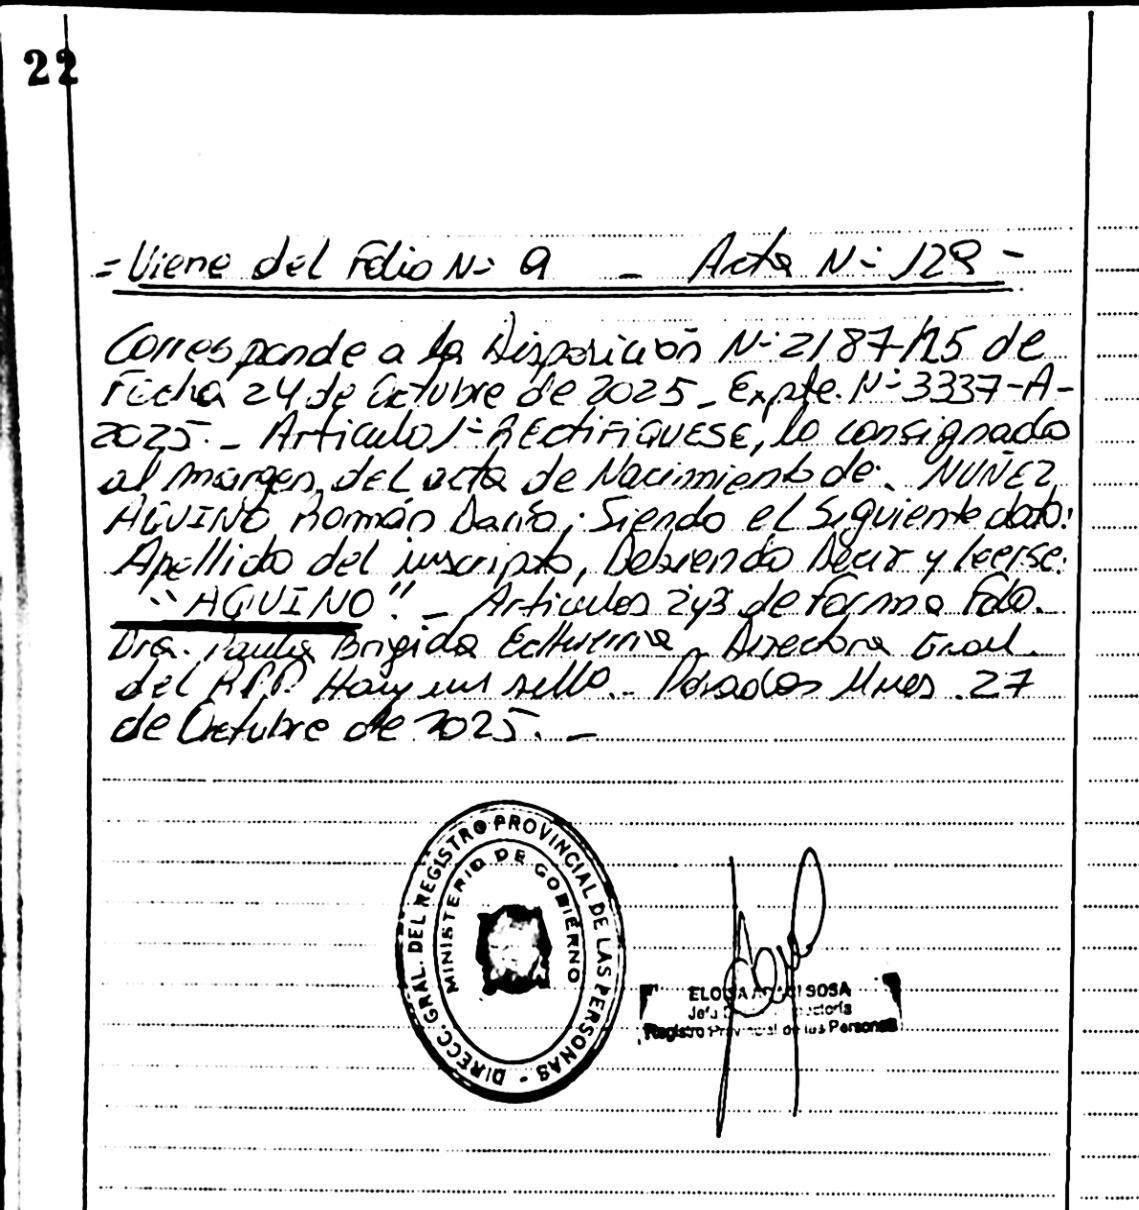 22
= Viene del Folio Nº 9 - Acta Nº 128 -
Corresponde a la Disposición Nº 2187/25 de
Fecha 24 de Octubre de 2025 - Expte. Nº 3337-A-
2025. - Articulo 1º RECTIFIQUESE, lo consignado
al margen, del acta de Nacimiento de: NUÑEZ
AQUINO Román Darío; Siendo el Siguiente dato:
Apellido del inscripto, Debiendo Decir y leerse:
"AQUINO". - Articulos 2y3 de forma Fdo.
Dra. Paula Brigida Directora Gral.
del RPP Hay un sello. - Posadas Mnes. 27
de Octubre de 2025. -
DIRECC. GRAL. DEL REGISTRO PROVINCIAL DE LAS PERSONAS -
MINISTERIO DE GOBIERNO
ELOISA SOSA
Registro Provincial de las Personas